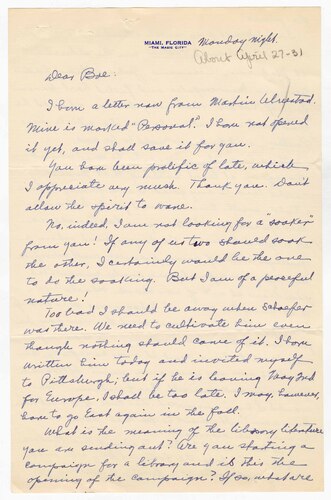 MIAMI, FLORIDA
"THE MAGIC CITY"
Monday night.
About April 27-31
Dear Boe:
I have a letter now from Martin
Mine is marked "Personal". I have not opened
it yet, and shall save it for you.
You have been prolific of late, which
I appreciate very much. Thank you. Don't
allow the spirit to wane.
No, indeed, I am not looking for a "soaker"
from you! If any of us two should soak
the other, I certainly would be the one
to do the soaking. But I am of a peaceful
nature!
Too bad I should be away when Schaefer
was there. We need to cultivate him even
though nothing should come of it. I have
written him today and invited myself
to Pittsburgh; but if he is leaving May 2nd
for Europe, I shall be too late. I may, however,
have to go East again in the fall.
What is the meaning of the library literature
you are sending out? Are you starting a
campaign for a library and is this the
opening of the campaign? If so, what are